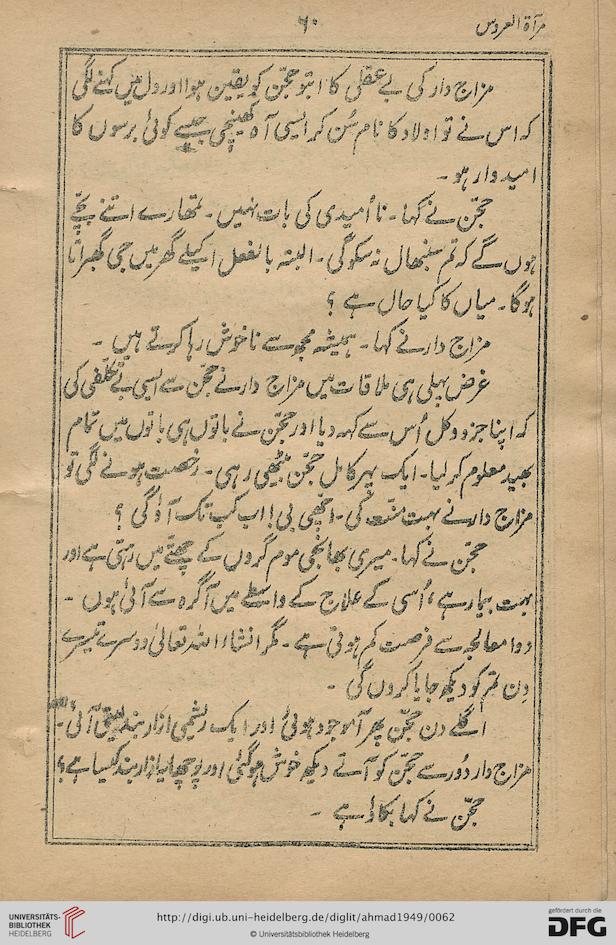 مرآۃ العروس
۶۰
مزاج دار کی بے عقلی کا ابتو حجّن کو یقین ہوا اور دل میں کہنے لگی
کہ اس نے تو اولاد کا نام سُن کر ایسی آہ کھینچی جیسے کوئی برسوں کا
امیدوار ہو ۔
حجّن نے کہا ۔ نا اُمیدی کی بات نہیں ۔ تمہارے اتنے بچّے
ہوں گے کہ تم سنبھال نہ سکو گی ۔ البتہ بالفعل اکیلے گھر میں جی گھبراتا
ہوگا ۔ میاں کا کیا حال ہے ؟
مزاج دار نے کہا ۔ ہمیشہ مجھ سے ناخوش رہا کرتے ہیں ۔
غرض پہلی ہی ملاقات میں مزاج دار نے حجّن سے ایسی بے تکلفی کی
کہ اپنا جزو و کل اُس سے کہہ دیا اور حجّن نے باتوں ہی باتوں میں تمام
بھید معلوم کر لیا ۔ ایک پہر کامل حجّن بیٹھی رہی ۔ رخصت ہونے لگی تو
مزاج دار نے بہت منّت کی ۔ اچّھی بی ! اب کب تک آؤ گی ؟
حجّن نے کہا ۔ میری بھانجی موم گروں کے چھتّے میں رہتی ہے اور
بہت بیمار ہے ، اُسی کے علاج کے واسطے میں آگرہ سے آئی ہوں ۔
دوا معالجہ سے فرصت کم ہوتی ہے ۔ مگر انشاء اللہ تعالیٰ دوسرے تیسرے
دن تم کو دیکھ جایا کروں گی ۔
اگلے دن حجّن پھر آ موجود ہوئی اور ایک ریشمی ازار بند لیتی آئی ۔
مزاج دار دُور سے حجّن کو آتے دیکھ خوش ہو گئی اور پوچھا یہ ازار بند کیسا ہے ؟
حجّن نے کہا بکاؤ ہے ۔
UNIVERSITÄTS-
BIBLIOTHEK
HEIDELBERG
http://digi.ub.uni-heidelberg.de/diglit/ahmad1949/0062
© Universitätsbibliothek Heidelberg
gefördert durch die
DFG